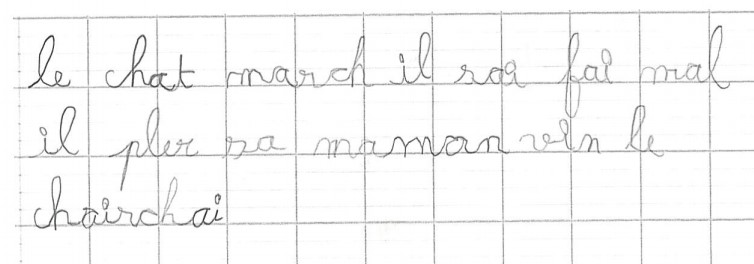 le chat march il sai fai mal
il pler sa maman vin le
chairchai